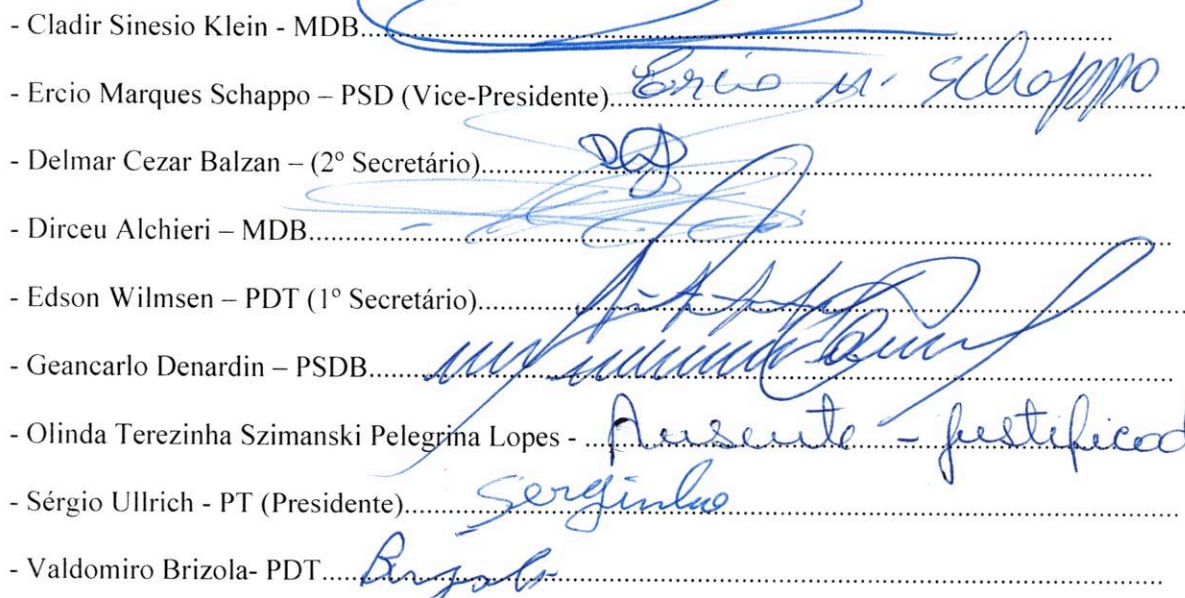 - Cladir Sinesio Klein - MDB
- Ercio Marques Schappo – PSD (Vice-Presidente) Ercio M. Schappo
- Delmar Cezar Balzan – (2º Secretário)
- Dirceu Alchieri – MDB
- Edson Wilmsen – PDT (1º Secretário)
- Geancarlo Denardin – PSDB
- Olinda Terezinha Szimanski Pelegrina Lopes - Ausente - justificad
- Sérgio Ullrich - PT (Presidente) Serginho
- Valdomiro Brizola- PDT Brizola